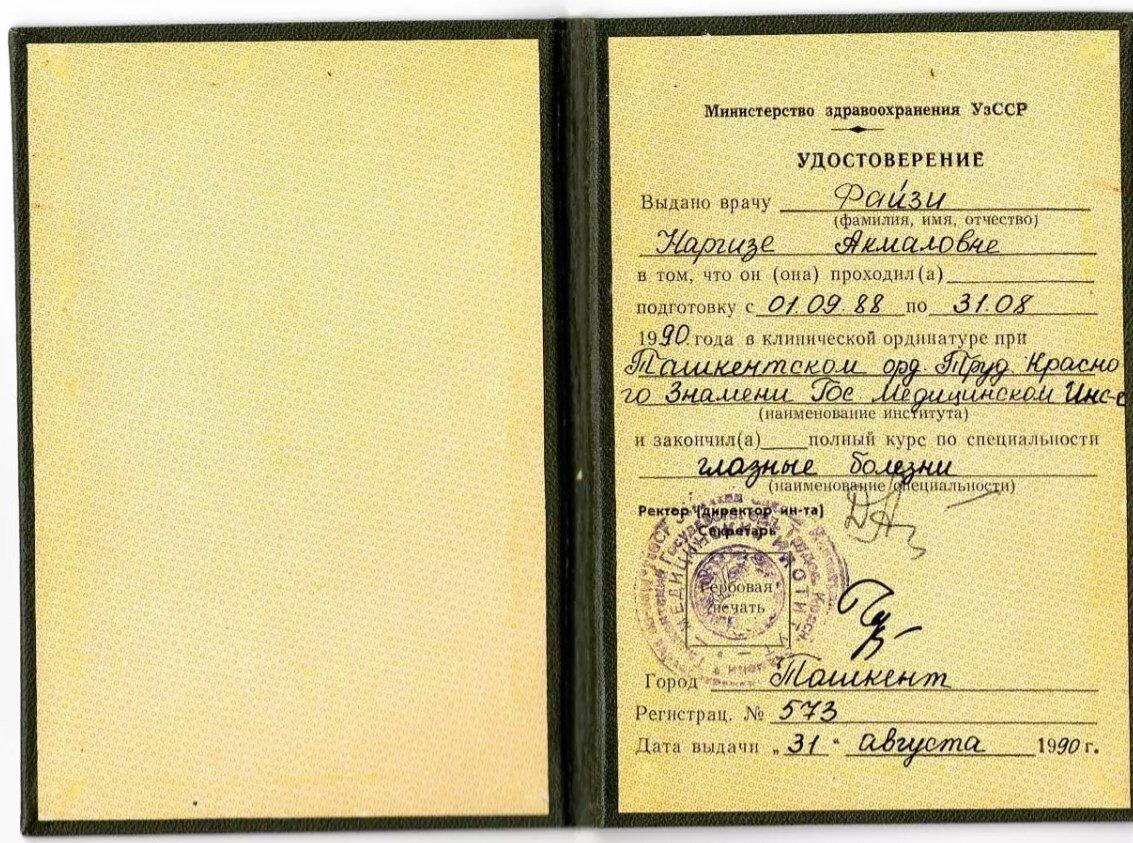 Министерство здравоохранения УзССР
УДОСТОВЕРЕНИЕ
Выдано врачу Файзи
(фамилия, имя, отчество)
Наргизе Акмаловне
в том, что он (она) проходил(а)
подготовку с 01.09.88 по 31.08
1990. года в клинической ординатуре при
Ташкентском орд. Труд. Красно
го Знамени Гос Медицинском Инс-
(наименование института)
и закончил(а) полный курс по специальности
глазные болезни
(наименование специальности)
Ректор (директор ин-та)
Секретарь
Гербовая
печать
Город Ташкент
Регистрац. № 573
Дата выдачи „31“ августа 1990 г.